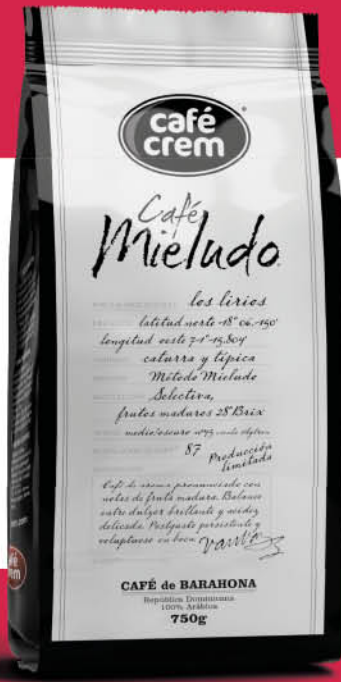 café
crem
Café
Mieludo
los lirios
latitud norte -18° 06.-150'
longitud oeste 71°-15.804
caturra y típica
Método Mieludo
Selectiva,
frutos maduros 28°Brix
medio/oscuro
87 Producción
limitada
Café de aroma pronunciado con
notas de fruta madura. Balance
entre dulzor brillante y acidez
delicada. Postgusto persistente y
voluptuoso en boca
CAFÉ de BARAHONA
República Dominicana
100% Arábica
750g
crem